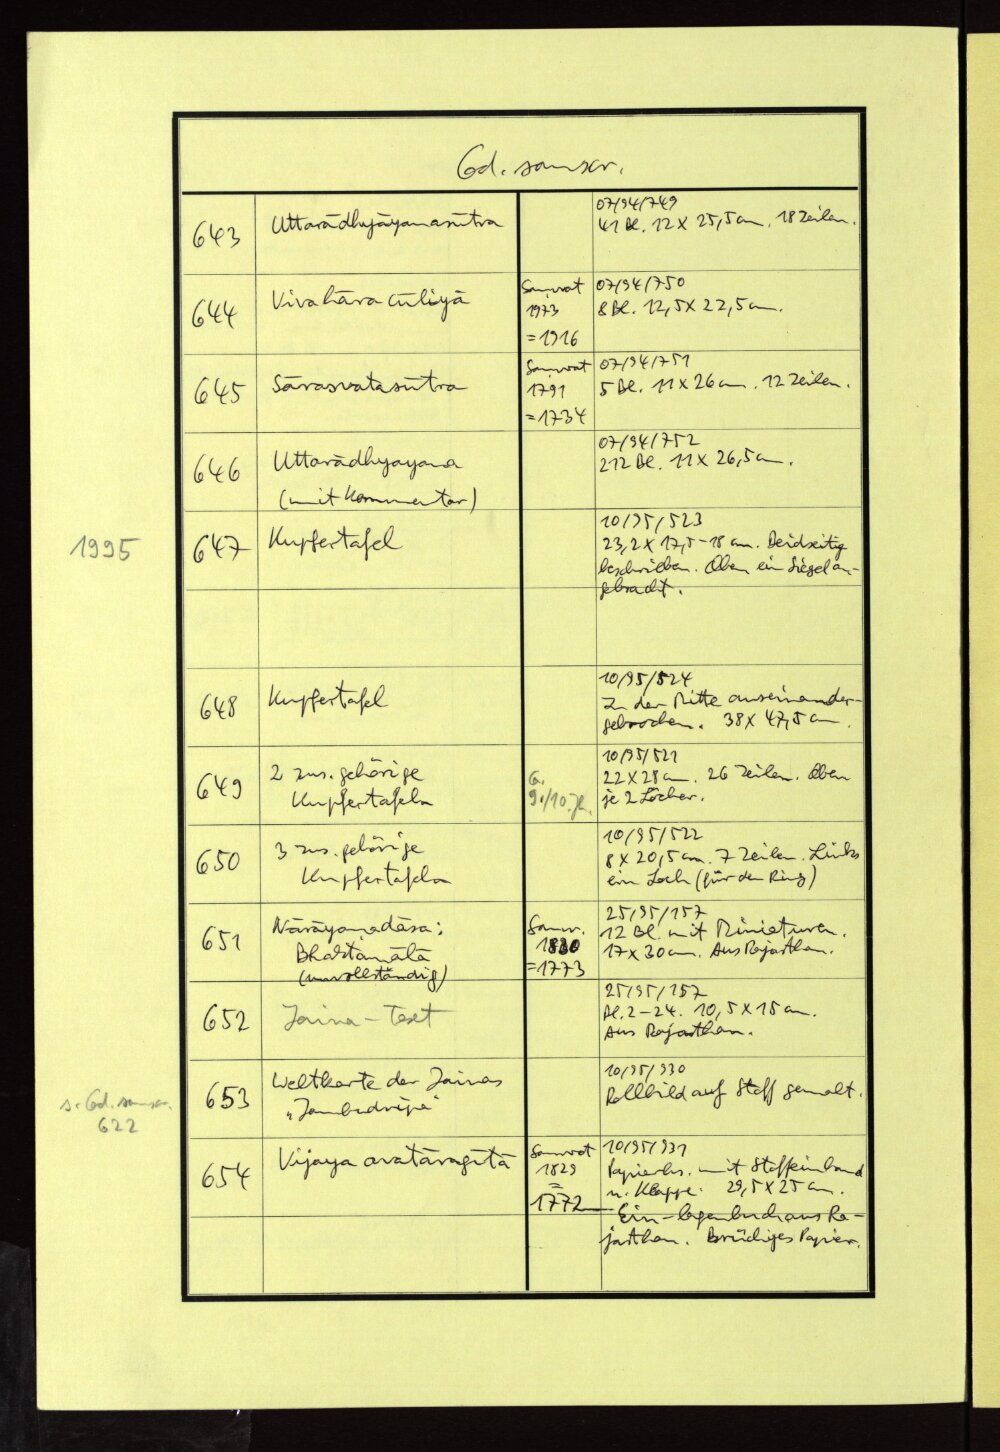 Cod. sanscr.
643
Uttarādhyāyanasūtra
07/94/749
41 Bl. 12 x 25,5 cm. 18 Zeilen.
644
Vivahāra cūliyā
Samvat
1973
=1916
07/94/750
8 Bl. 12,5 x 22,5 cm.
645
Sārasvatasūtra
Samvat
1791
=1734
07/94/751
5 Bl. 11 x 26 cm. 12 Zeilen.
646
Uttarādhyayana
(mit Kommentar)
07/94/752
212 Bl. 11 x 26,5 cm.
1995
647
Kupfertafel
10/95/523
23,2 x 17,5-18 cm. Beidseitig
beschrieben. Oben ein Siegel an-
gebracht.
648
Kupfertafel
10/95/524
In der Mitte auseinander-
gebrochen. 38 x 47,5 cm.
649
2 zus. gehörige
Kupfertafeln
Ca.
9./10. Jh.
10/95/521
22 x 28 cm. 26 Zeilen. Oben
je 2 Löcher.
650
3 zus. gehörige
Kupfertafeln
10/95/522
8 x 20,5 cm. 7 Zeilen. Links
ein Loch (für den Ring)
651
Nārāyanadāsa:
Bhaktamālā
(unvollständig)
Samv.
1830
=1773
25/95/157
12 Bl. mit Miniaturen.
17 x 30 cm. Aus Rajasthan.
652
Jaina-Text
25/95/157
Bl. 2-24. 10,5 x 15 cm.
Aus Rajasthan.
s. Cod. sanscr.
622
653
Weltkarte der Jainas
„Jambudvipa"
10/95/930
Rollbild auf Stoff gemalt.
654
Vijaya avatāragītā
Samvat
1829
=
1772
10/95/931
Papierhs. mit Stoffeinband
u. Klappe. 29,5 x 25 cm.
Ein aus Ra-
jasthan. Brüchiges Papier.